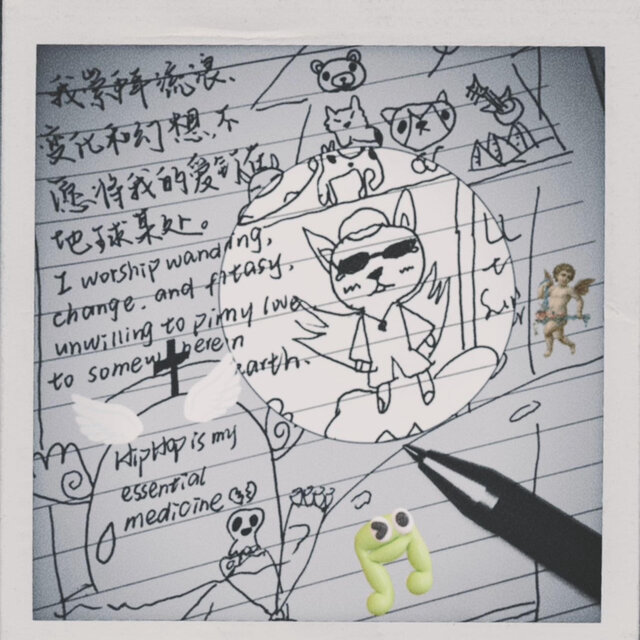 我崇拜流浪、
变化和幻想,不
愿将我的爱钉在
地球某处。
I worship wandring,
change. and fntasy,
unwilling to pin my love
to somewherein
earth.
HipHop is my
essential
medicine